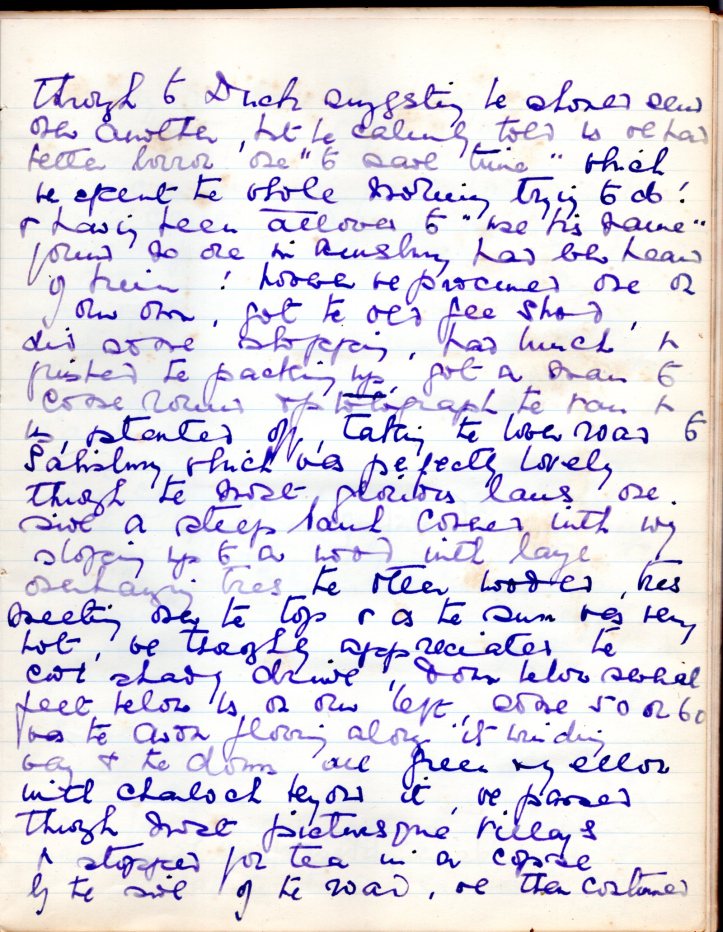 through to Duck suggesting he should send
over another, but he calmly told us we had
better borrow one "to save time" which
we spent the whole morning trying to do!
& having been allowed to "use his name"
found no one in Amesbury had ever heard
of him! however we procured one on
our own, got the old gee shod,
did some shopping, had lunch &
finished the packing up, got a man to
come round & photograph the van &
us, started off, taking the lower road to
Salisbury which was perfectly lovely
through the most glorious lanes one
side a steep bank covered with ivy
sloping up to a wood with large
overhanging trees the other wooded, trees
meeting over the top & as the sun was very
hot, we thoroughly appreciated the
cool shady drive, down below several
feet below us on our left, some 50 or 60
was the Avon flowing along its winding
way & the downs all green & yellow
with charlock beyond it, we passed
through most picturesque villages
& stopped for tea in a copse
by the side of the road, we then continued